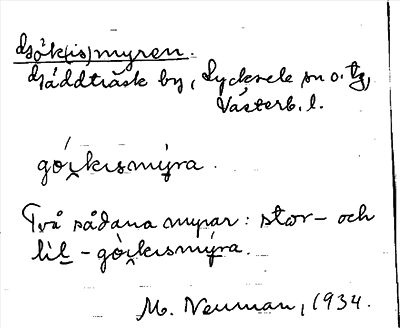 Gök(is)myren.
Gäddträsk by, Lycksele sn o. tg,
Västerb. l.
góikismýra.
Två sådana myrar: stor- och
lil-gòikismýra.
M. Neuman, 1934.